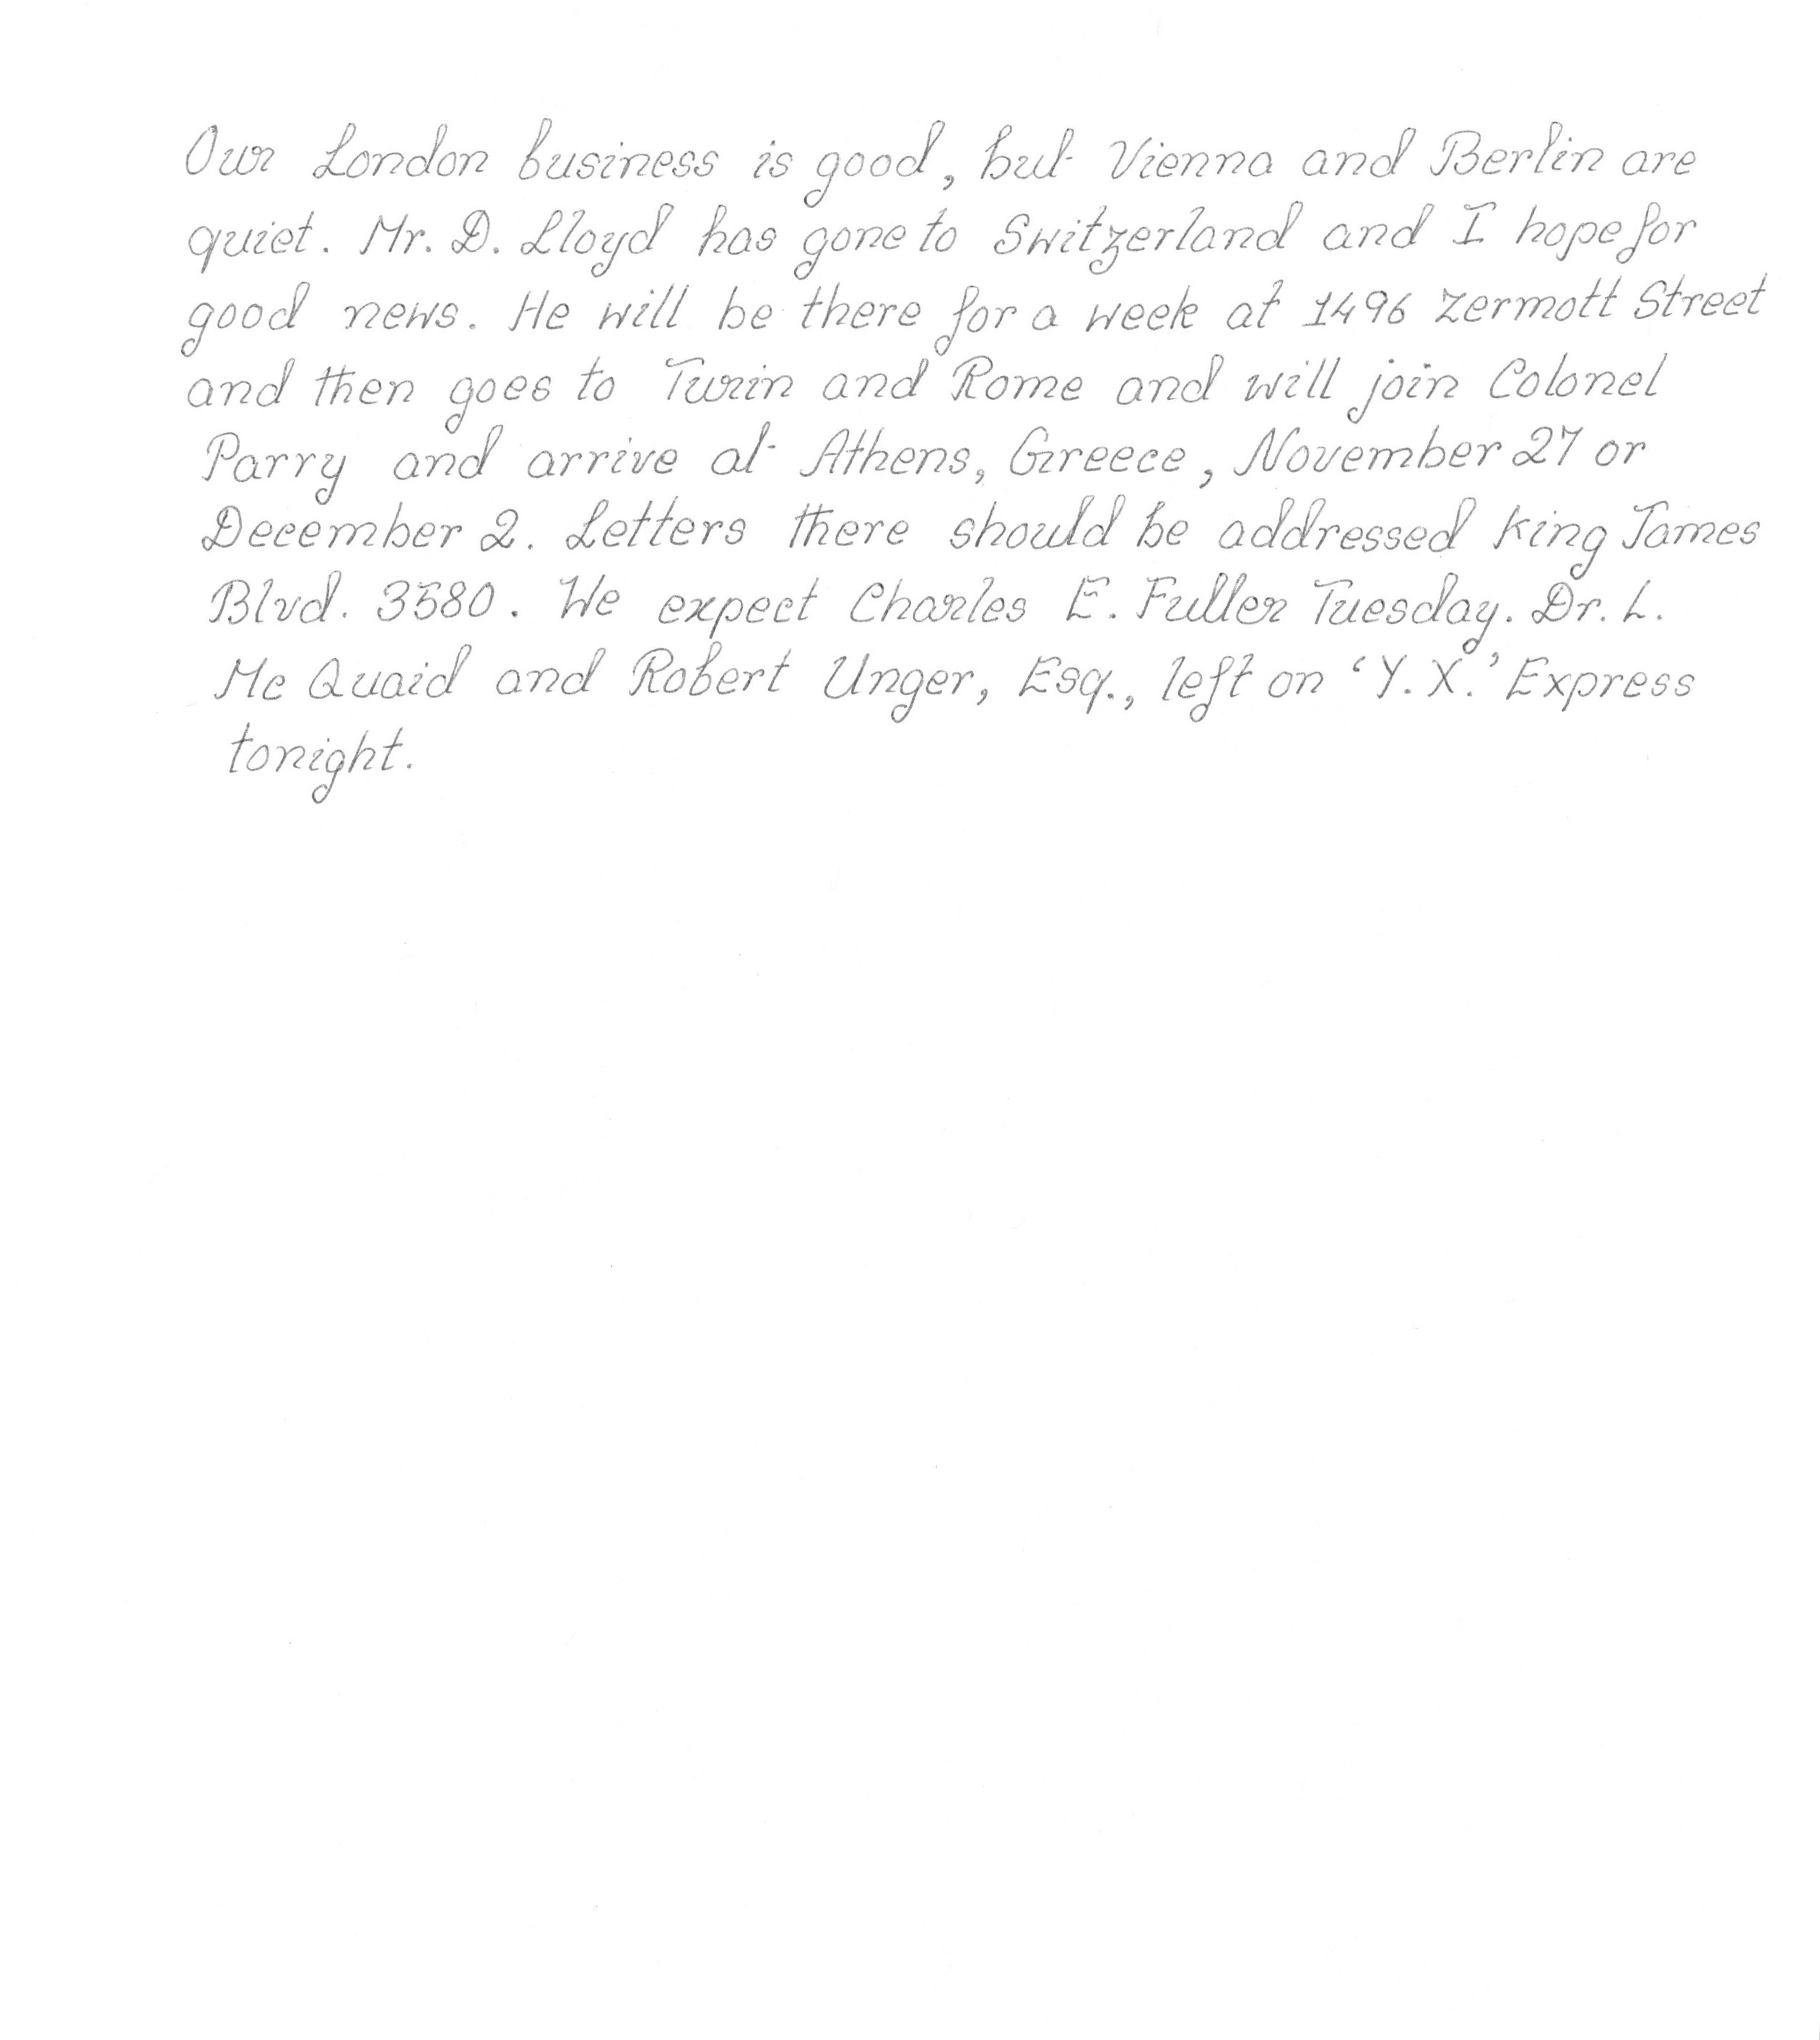 Our London business is good, but Vienna and Berlin are
quiet. Mr. D. Lloyd has gone to Switzerland and I hope for
good news. He will be there for a week at 1496 Zermott Street
and then goes to Turin and Rome and will join Colonel
Parry and arrive at Athens, Greece, November 27 or
December 2. Letters there should be addressed King James
Blvd. 3580. We expect Charles E. Fuller Tuesday. Dr. L.
Mc Quaid and Robert Unger, Esq., left on 'Y. X.' Express
tonight.